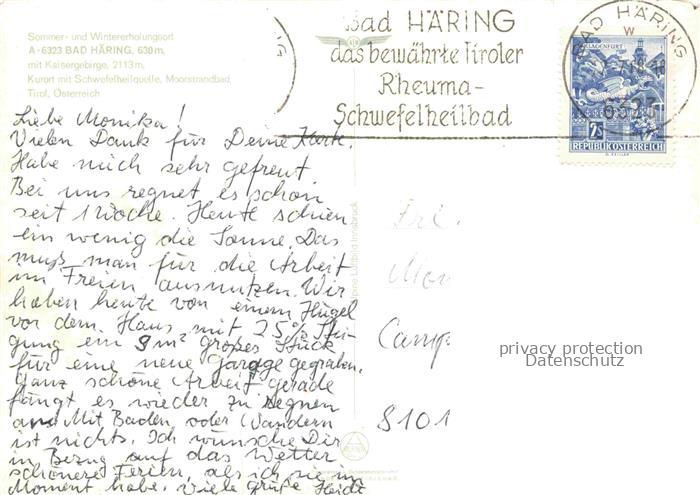 Sommer- und Wintererholungsort
A-6323 BAD HÄRING, 630 m,
mit Kaisergebirge, 2113 m,
Kurort mit Schwefelheilquelle, Moorstrandbad,
Tirol, Österreich
Liebe Monika!
Vielen Dank für Deine Karte.
Habe mich sehr gefreut
Bei uns regnet es schon
seit 1 Woche. Heute schien
ein wenig die Sonne. Das
muß man für die Arbeit
im Freien ausnutzen. Wir
haben heute von einem Hügel
vor dem Haus mit 25% Stei-
gung ein 9 m² großes Stück
für eine neue Garage gegraben.
Ganz schöne Arbeit gerade
fängt es wieder zu regnen
an. Mit Baden oder Wandern
ist nichts. Ich wünsche Dir
in Bezug auf das Wetter
schönere Ferien, als ich sie im
Moment habe. Viele Grüße Heidi
Bad HÄRING
das bewährte Tiroler
Rheuma-
Schwefelheilbad
BAD HÄRING
6323
KLAGENFURT
2S
REPUBLIK ÖSTERREICH
Alpine Luftbild Innsbruck
Frl.
Mon
Camp
8101
privacy protection
Datenschutz